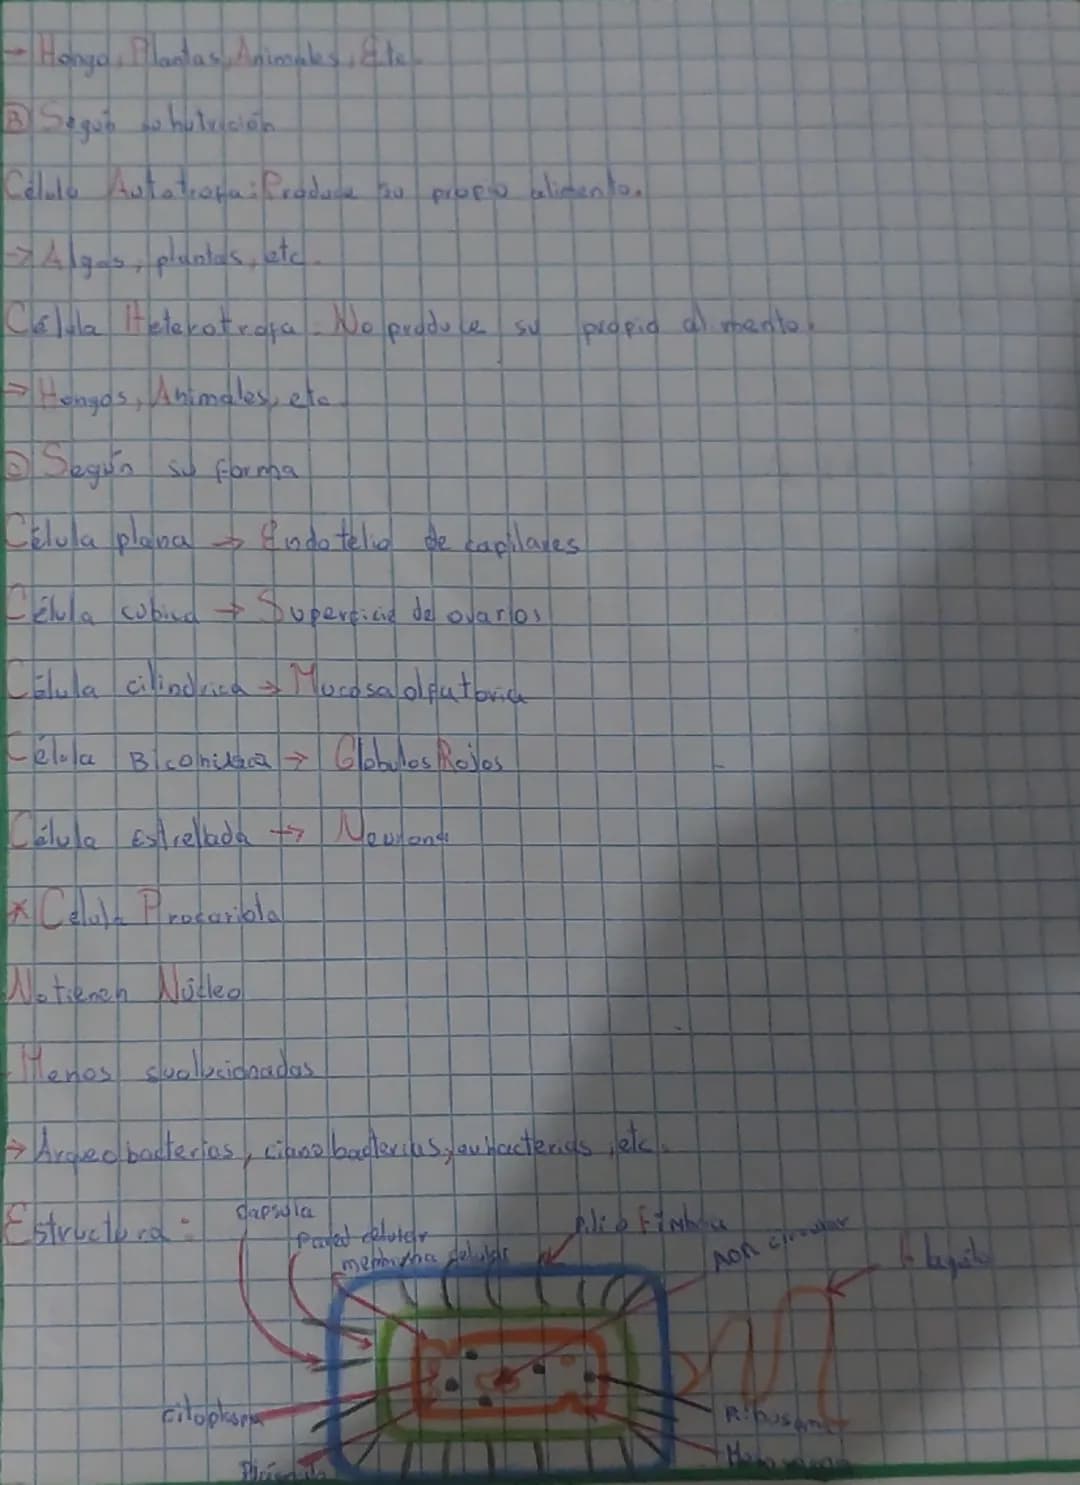 → Hongo, Plantas, Animales, Etc.
B) Según su nutrición
Célula Autotrofa: Produce su propio alimento.
→ Algas, plantas, etc.
Célula Heterotrofa - No produce su propio alimento.
→ Hongos, Animales, etc.
Según su forma
Célula plana → Endotelio de capilares
Célula cubica → Superficie de ovarios
Célula cilindrica → Mucosa olfatoria
Célula → Globulos Rojos
Célula Estrellada → Neurona
* Celula Procariota
No tienen Núcleo
Menos
→ Arqueobacterias, cianobacterias, eubacterias, etc.
Estructura:
capsula
Pared celular
membrana celular
Pili o Fimbria
ADN circular
Flagelo
citoplasma
Ribosoma